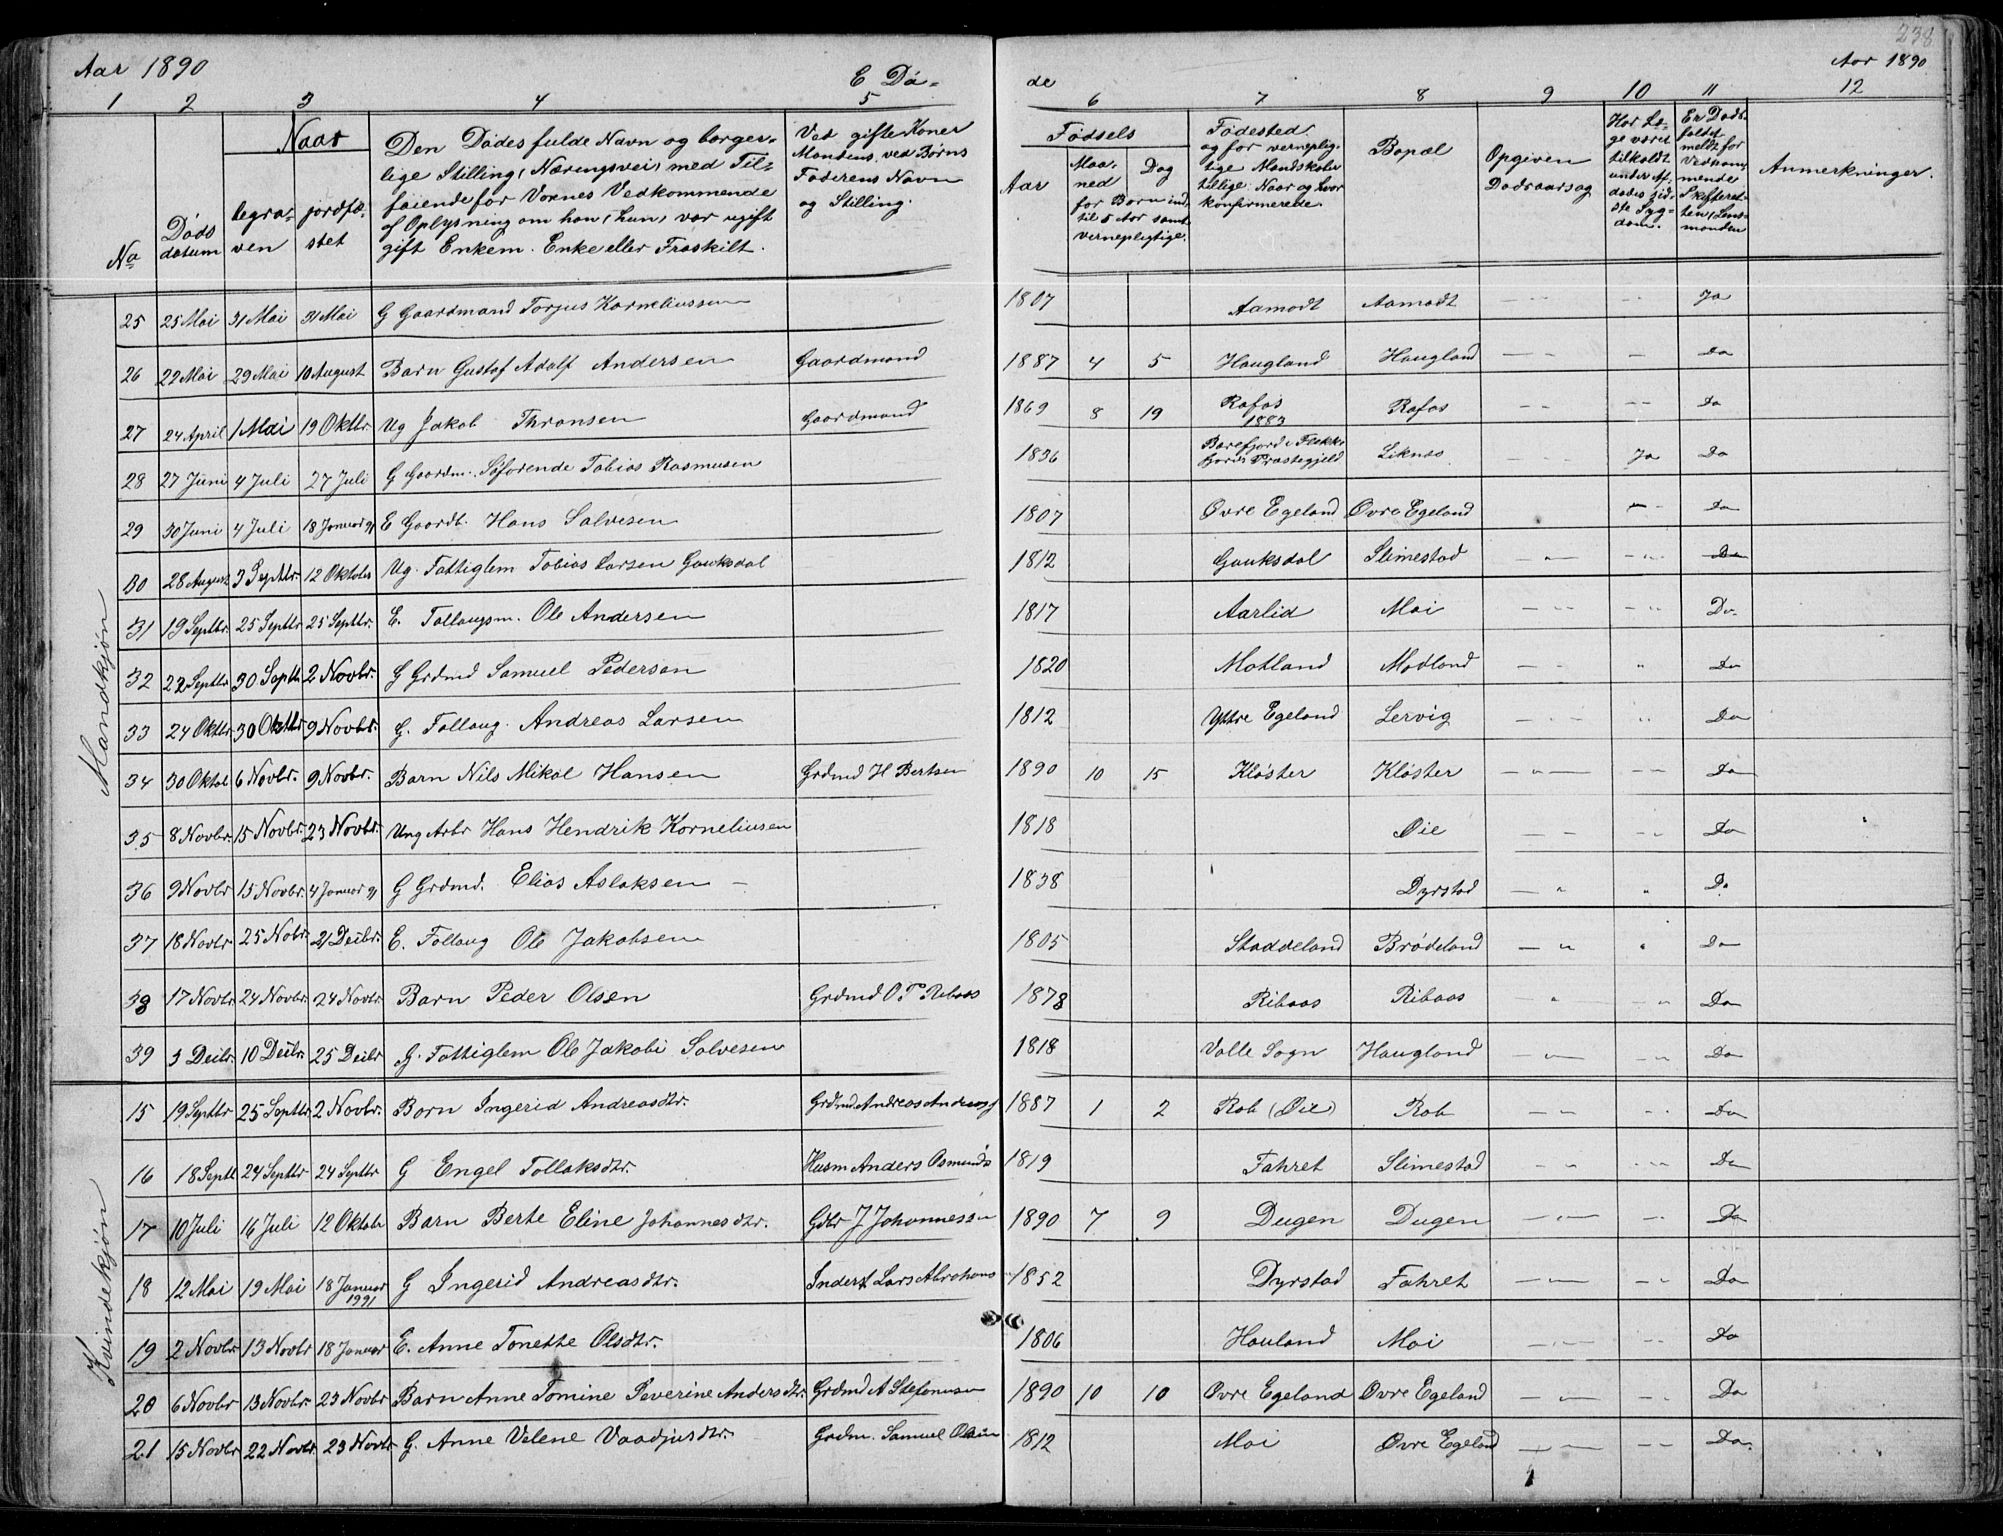 238
Aar 1890 E Dø- de Aar 1890
1 2 3 4 5 6 7 8 9 10 11 12
No
Døds datum
Naar
begra- ven
jordfæ- stet
Den Dødes fulde Navn og borger-
lige Stilling, Næringsvei, med Til-
føiende for Voxnes Vedkommende
af Oplysning om han, hun, var ugift
gift Enkem. Enke eller Fraskilt.
Ved gifte Koner
Mandens, ved Børns
Faderens Navn
og Stilling.
Fødsels
Aar
Maa- ned
Dag
for Børn ind-
til 5 Aar samt
vernepligtige.
Fødested
og for vernepligtige Mandskaber
tillige: Naar og hvor
konfirmerede
Bopæl
Opgiven
Dødsaarsag
Har Læ-
ge været
tilkaldt
under Af-
dødes sid-
ste Syg-
dom.
Er Døds-
faldet
meldt for
Vedkom-
mende
Skifteret-
ten, Lens-
manden
Anmerkninger.
Mandkjøn
25 25 Mai 31 Mai 31 Mai G Gaardmand Torjus Korneliussen 1807 Aamodt Aamodt Ja
26 22 Mai 29 Mai 10 August Barn Gustaf Adolf Andersen Gaardmand 1887 4 5 Haugland Haugland Do
27 24 April 1 Mai 19 Oktbr. Ug Jakob Thronsen Gaardmand 1869 8 19 Rafos 1883 Rafos Do
28 27 Juni 4 Juli 27 Juli G Gaardm. Søfarende Tobias Rasmusen 1836 Præstegjeld Liknes Ja Do
29 30 Juni 4 Juli 18 Januar 91 E Gaardb. Hans Salvesen 1807 Øvre Egeland Øvre Egeland Do
30 28 August 3 Septbr. 12 Oktober Ug. Fattiglem Tobias Larsen Gauksdal 1812 Gauksdal Slimestad Do
31 19 Septbr. 25 Septbr 25 Septbr. E. Follaugsm. Ole Andersen 1817 Aarlid Moi Do.
32 22 Septbr 30 Septb. 2 Novbr. G Grdmd Samuel Pedersen 1820 Motland Modland Do
33 24 Oktbr. 30 Oktbr 9 Novbr. G. Follaug. Andreas Larsen 1812 Yttre Egeland Lervig Do
34 30 Oktob 6 Novbr. 9 Novbr. Barn Nils Mikal Hansen Grdmd H Bertsen 1890 10 15 Kløster Kløster Do
35 8 Novbr. 15 Novbr. 23 Novbr. Ung Arbr Hans Hendrik Korneliusen 1818 Øie Do
36 9 Novbr 15 Novbr. 4 Januar 91 G Grdmd. Elias Aslaksen 1838 Dyrstad Do
37 18 Novbr. 25 Nobr. 21 Decbr. E. Follaug Ole Jakobsen 1805 Staddeland Brødeland Do
38 17 Novbr. 24 Novbr. 24 Novbr Barn Peder Olsen Grdmd O T Ribaas 1878 Ribaas Ribaas Do
39 3 Decbr. 10 Decbr. 25 Decbr G. Fattiglem Ole Jakobi Salvesen 1818 Valle Sogn Haugland Do
Kvindekjøn
15 19 Septbr 25 Septbr. 2 Novbr. Barn Ingerid Andreasdtr. Grdmd Andreas 1887 1 2 Rob (Øie) Rob Do
16 18 Septb. 24 Septbr 24 Septbr G Engel Tollaksdtr. Husm Anders Osmunds 1819 Fahret Slimestad Do
17 10 Juli 16 Juli 12 Oktobr Barn Berte Eline Johannesdtr. Gdbr J Johannessen 1890 7 9 Dugen Dugen Do
18 12 Mai 19 Mai 18 Januar 1991 G Ingerid Andreasdtr. Inderst Lars Abrahams 1852 Dyrstad Fahret Do
19 2 Novbr. 13 Novbr 18 Januar E. Anne Tonette Olsdtr. 1806 Hauland Moi Do
20 6 Novbr 13 Novbr. 23 Novbr Barn Anne Tomine Severine Andersdtr. Grdmd A Stefanusen 1890 10 10 Øvre Egeland Øvre Egeland Do
21 15 Novbr. 22 Novbr. 23 Novbr G. Anne Velene Vaadjusdtr. Grdm. Samuel Olsen 1812 Moi Øvre Egeland Do.